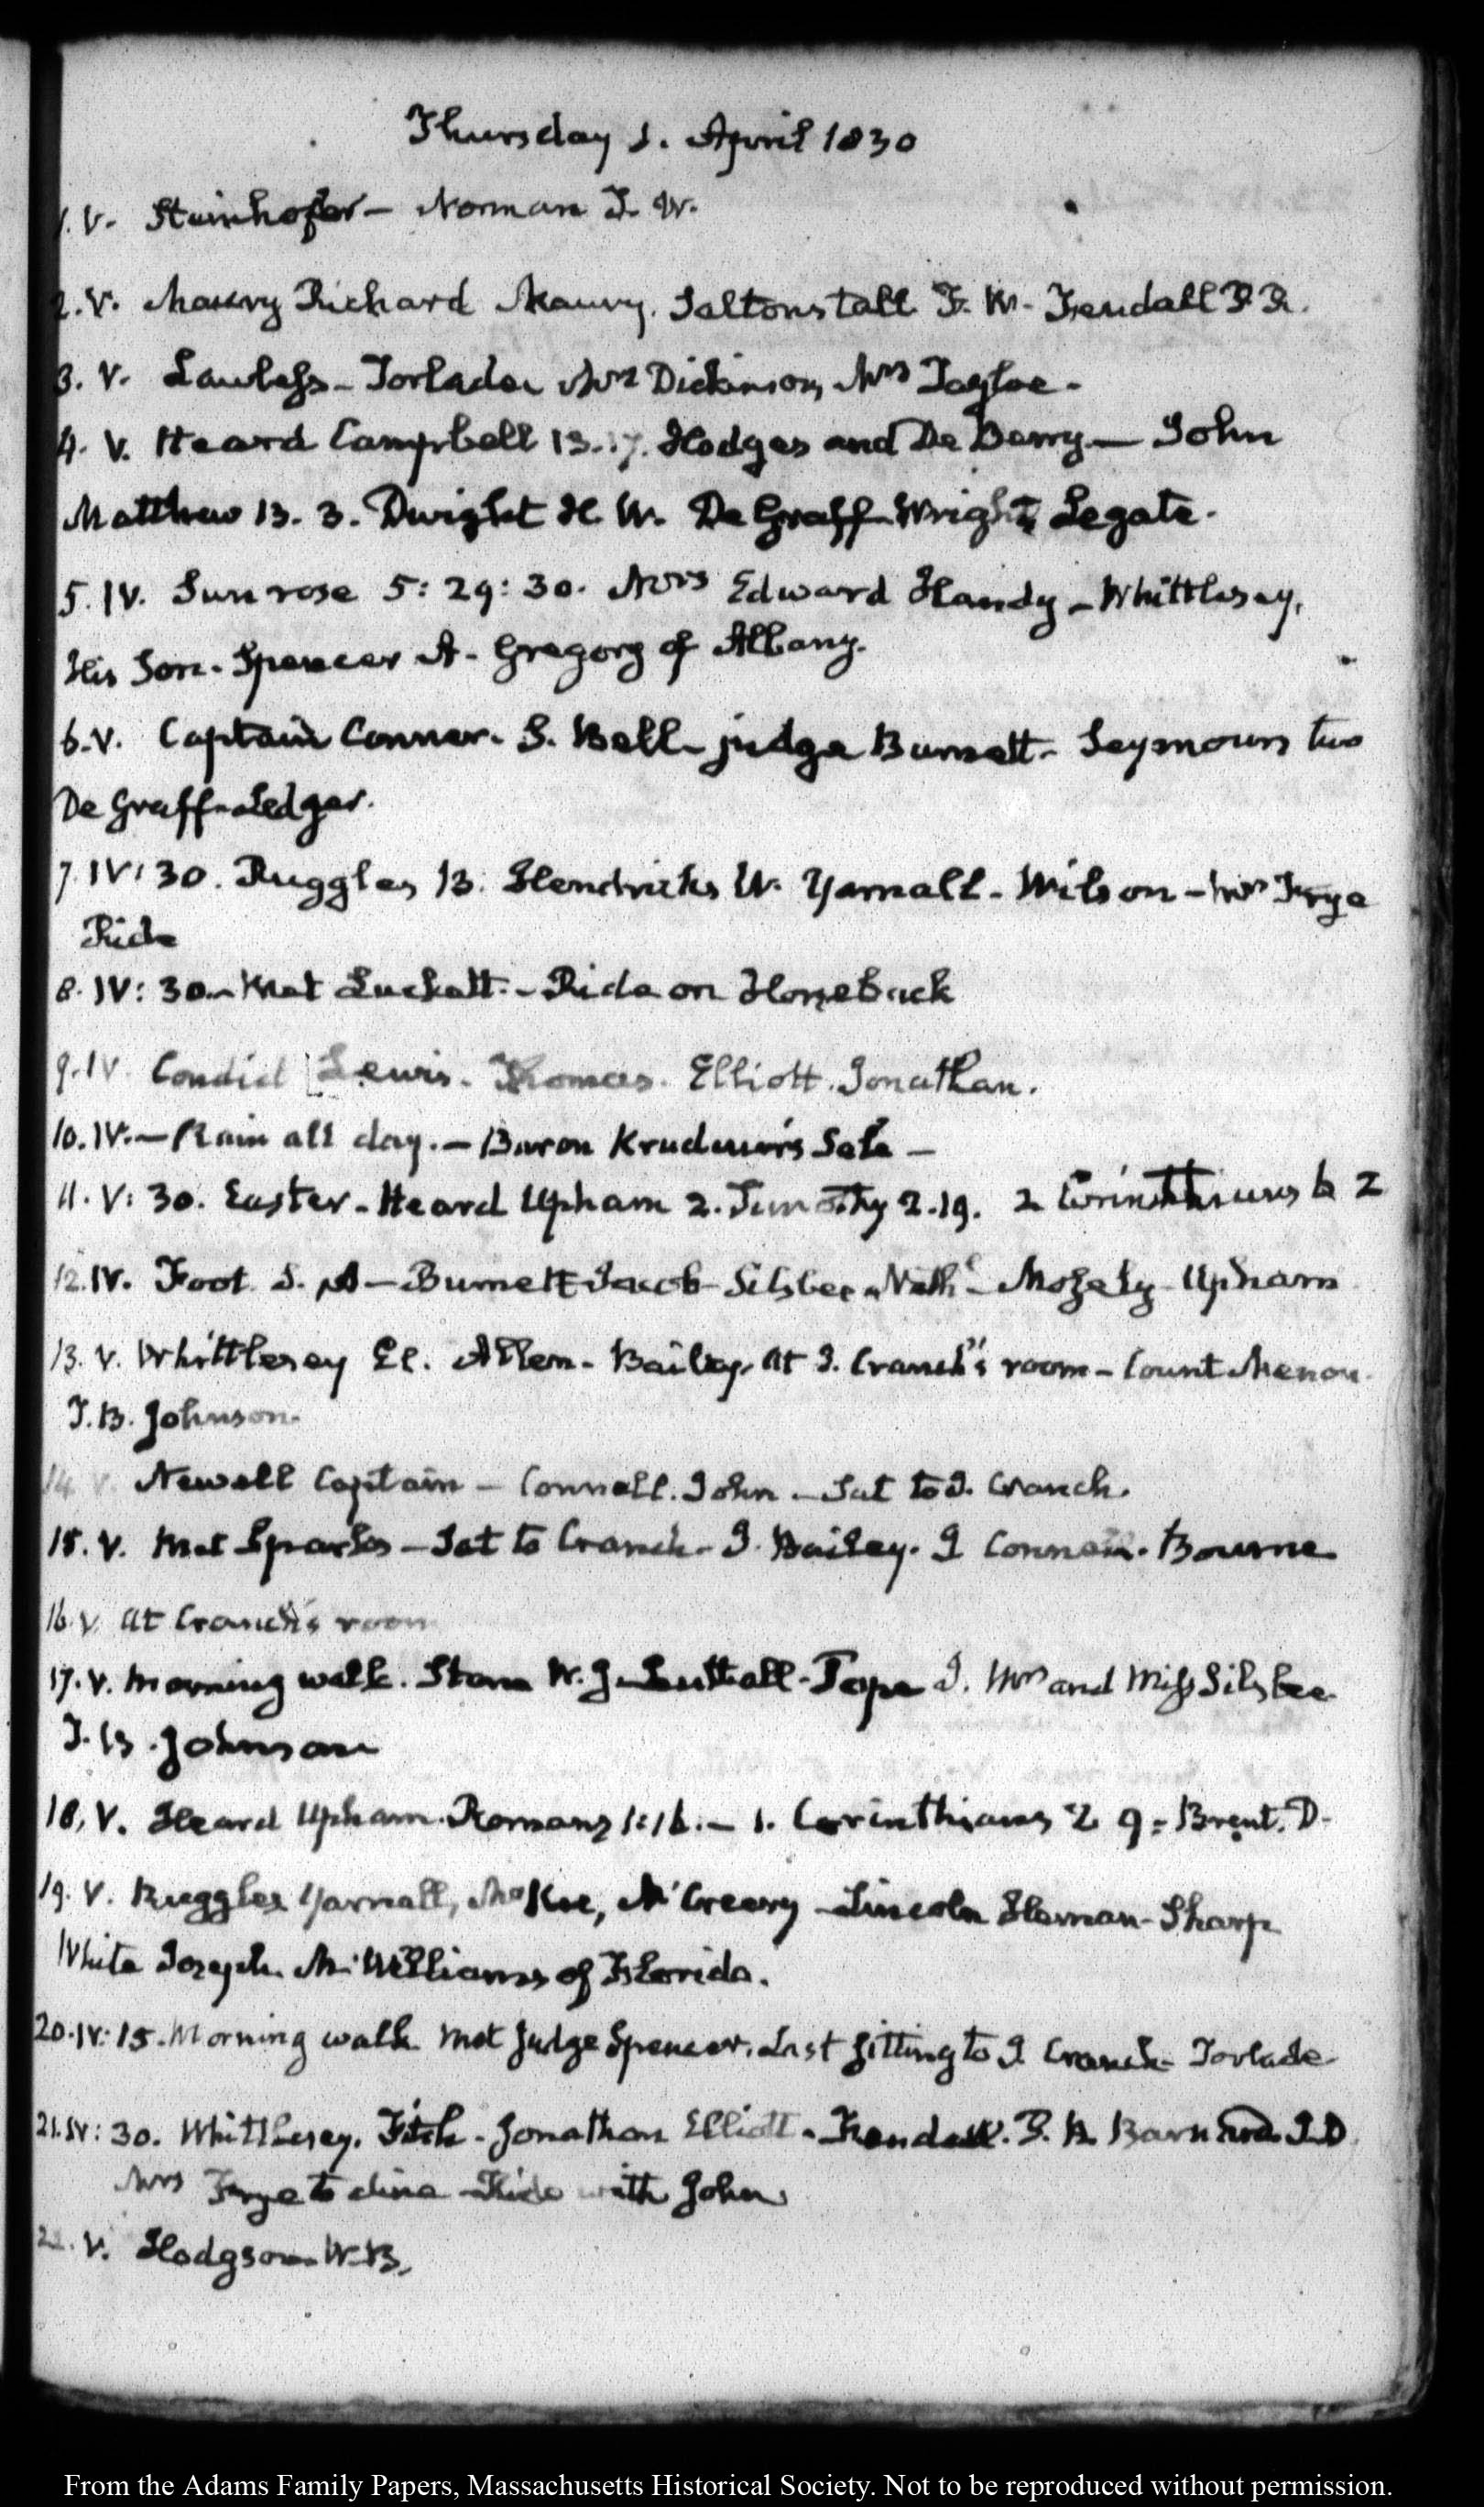 Thursday 1. April 1830
1. V. Steinhofer — Norman J. W.
2. V. Maury Richard Maury. Saltonstall F. W. - Kendall
3. V. Lawless - Torlade Mrs Dickinson, Mrs Tayloe -
4. V. Heard Campbell 13.17. Hodges and De Berry — John
Matthew 13. 3. Dwight H. W. De Graff - Wright, Legate -
5. IV. Sun rose 5: 29: 30. Mrs Edward Handy - Whittlesey,
His Son - Spencer A - Gregory of Albany.
6. V. Captain Conner - S. Bell - judge Burnett - Seymours two
De Graff - Ledger.
7. IV: 30. Ruggles B. Hendricks W. Yarnall - Wilson - Mrs Frye
Ride
8. IV: 30 - Met Luckett - Ride on Horseback
9. IV. Condict Lewis - Thomas. Elliott. Jonathan.
10. IV. — Rain all day. — Baron Krudener's Sale —
11. V: 30. Easter - Heard Upham 2. Timothy 2.19. 2 Corinthians 6 2
12. IV. Foot S. A — Burnett Jacob - Silsbee Nathl - Mozely - Upham
13. V. Whittlesey El. Allen - Bailey, at J. Cranch's room - Count Menou.
T. B. Johnson.
14 V. Newell Captain — Connell. John - Sat to J. Cranch.
15. V. Met Sparks - Sat to Cranch - J. Bailey. J Connell. Bourne
16. V. At Cranch's room
17. V. Morning walk. Stone W. J. - Pope J. Mrs and Miss Silsbee
T. B. Johnson
18. V. Heard Upham. Romans 1:16. — 1. Corinthians 2 9 - Brent. D.
19. V. Ruggles Yarnall, McKee, McCreery - Lincoln Heman - Sharp
White Joseph. M. Williams of Florida.
20. IV: 15. Morning walk met Judge Spencer. Last sitting to J Cranch - Torlade
21. IV: 30. Whittlesey. Fitch - Jonathan Elliott - Barnard D. D.
Mrs Frye to dine - Ride with John
22. V. Hodgson W. B.
From the Adams Family Papers, Massachusetts Historical Society. Not to be reproduced without permission.